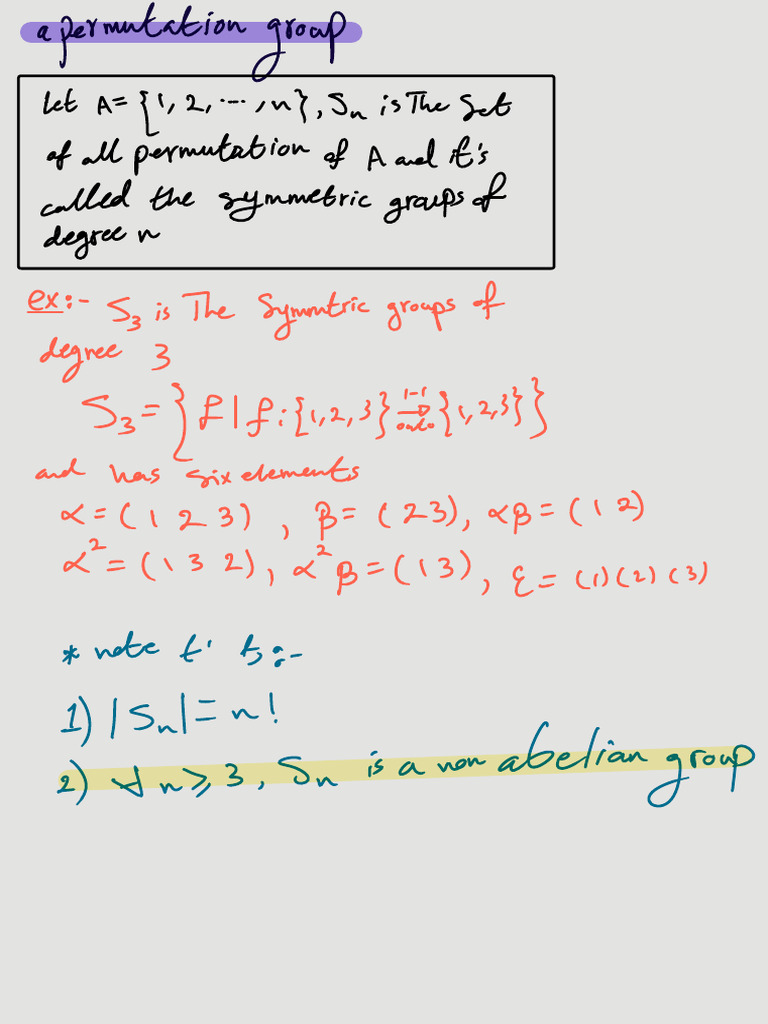 a permutation group
Let A= {1, 2, ..., n}, Sn is The set
of all permutation of A and it's
called the symmetric groups of
degree n
ex:- S3 is The Symmtric groups of
degree 3
S3 = {f | f: {1, 2, 3} 1-1 onto {1, 2, 3}}
and has six elements
α = (1 2 3), β = (2 3), αβ = (1 2)
α² = (1 3 2), α²β = (1 3), ε = (1)(2)(3)
* note :-
1) |Sn| = n!
2) ∀ n ≥ 3, Sn is a non abelian group